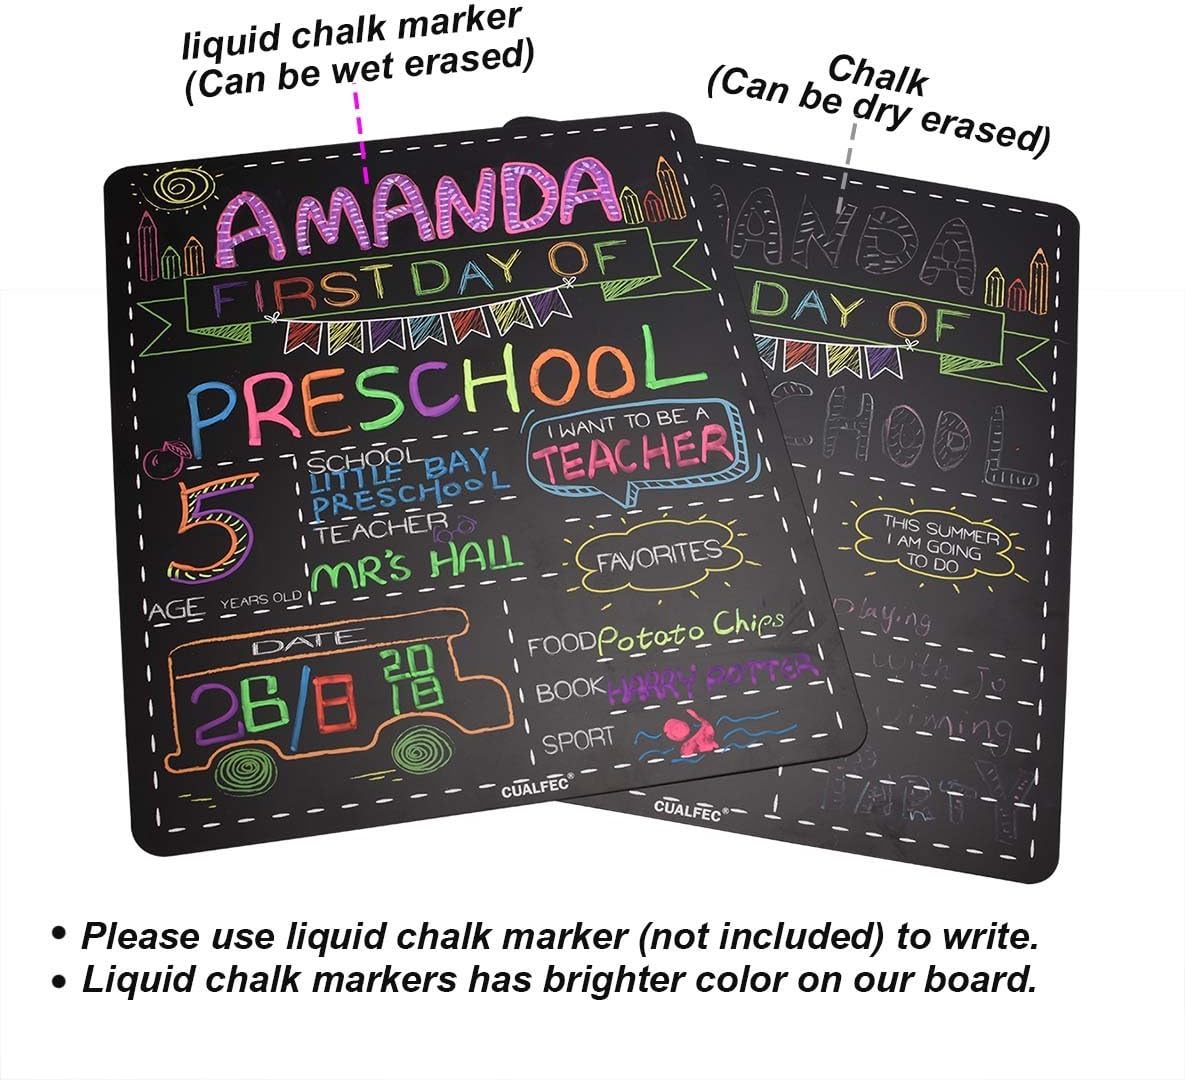 liquid chalk marker
(Can be wet erased)
Chalk
(Can be dry erased)
AMANDA
FIRST DAY OF
PRESCHOOL
I WANT TO BE A
TEACHER
SCHOOL
LITTLE BAY
PRESCHOOL
TEACHER
MR'S HALL
5
AGE YEARS OLD
FAVORITES
DATE
26/8 2018
FOOD Potato Chips
BOOK HARRY POTTER
SPORT
CUALFEC®
ANDA
DAY OF
CHOOL
THIS SUMMER
I AM GOING
TO DO
Playing
with Jo
wiming
PARTY
CUALFEC®
• Please use liquid chalk marker (not included) to write.
• Liquid chalk markers has brighter color on our board.